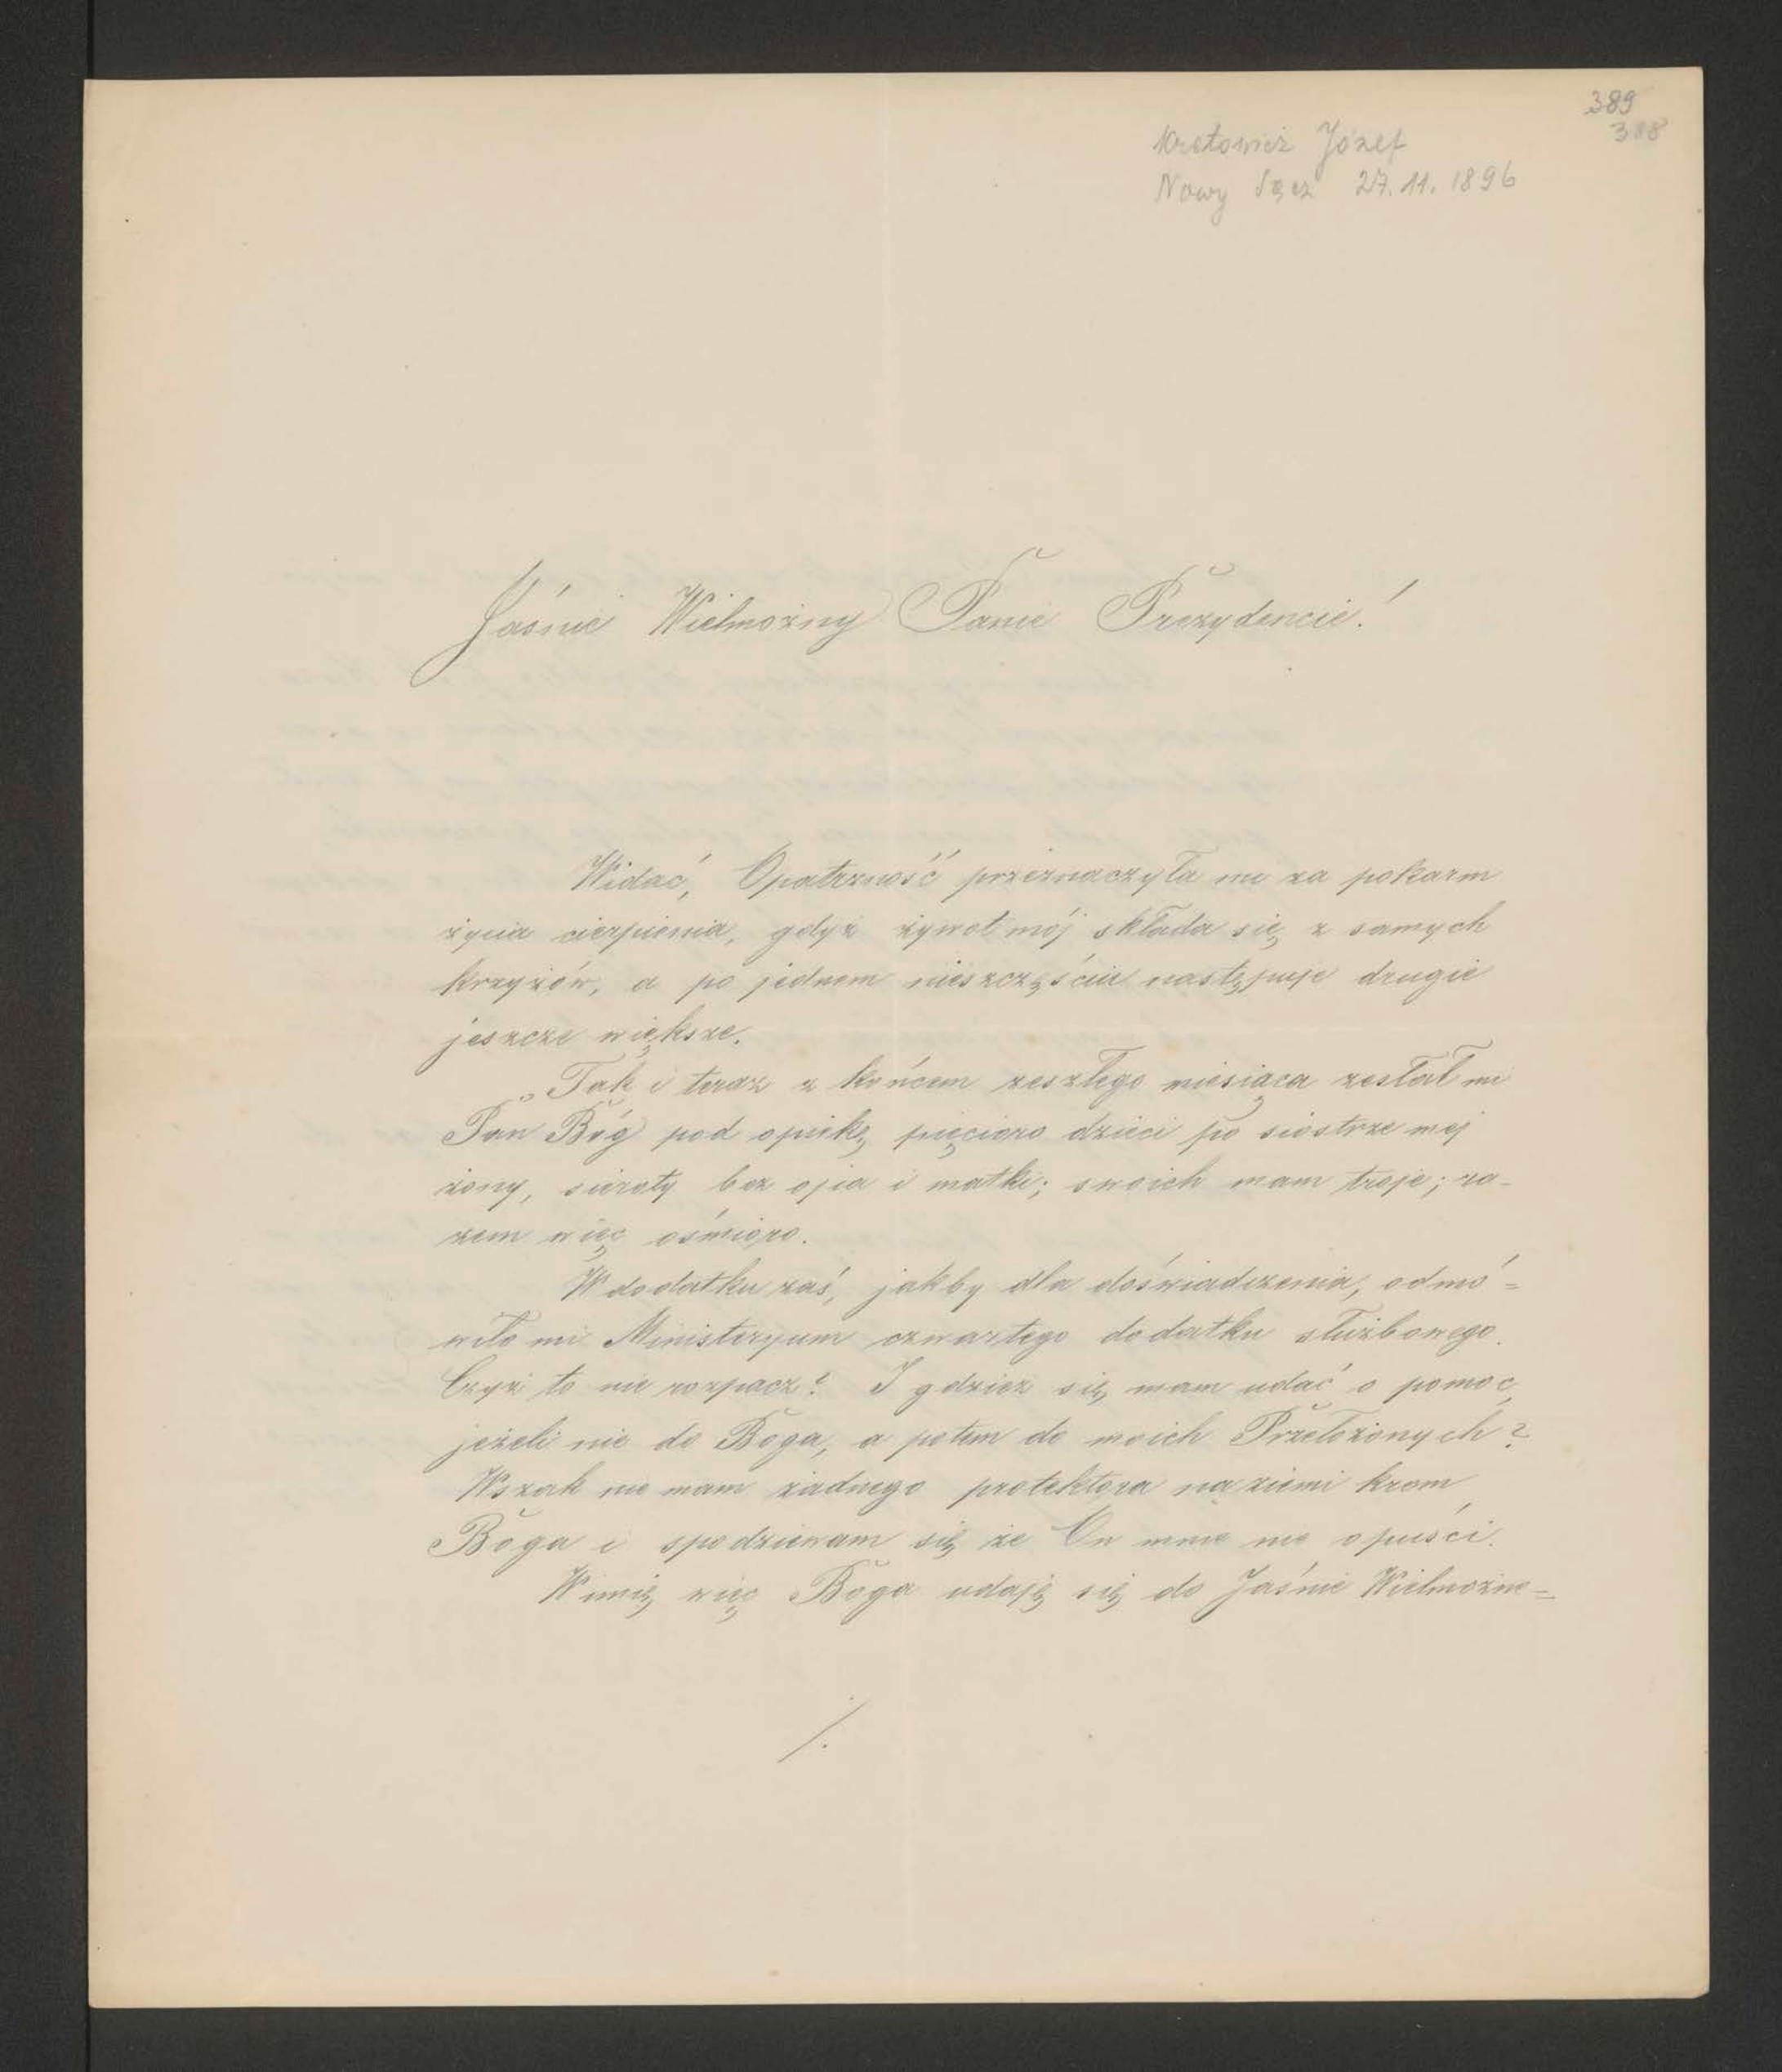 389
388
Krotowicz Józef
Nowy Sącz 27.11.1896
Jaśnie Wielmożny Panie Prezydencie!
Widać, Opatrzność przeznaczyła mi za pokarm
życia cierpienia, gdyż żywot mój składa się z samych
krzyżów, a po jednem nieszczęściu następuje drugie
jeszcze większe.
Tak i teraz z końcem zeszłego miesiąca zesłał mi
Pan Bóg pod opiekę pięcioro dzieci po siostrze mej
żony, sieroty bez ojca i matki; swoich mam troje; ra-
zem więc ośmioro.
W dodatku zaś, jakby dla doświadczenia, odmó=
wiło mi Ministeryum czwartego dodatku służbowego.
Czyż to nie rozpacz? I gdzież się mam udać o pomoc,
jeżeli nie do Boga, a potem do moich Przełożonych?
Wszak nie mam żadnego protektora na ziemi krom
Boga i spodziewam się że On mnie nie opuści.
W imię więc Boga udaję się do Jaśnie Wielmożne=
./.